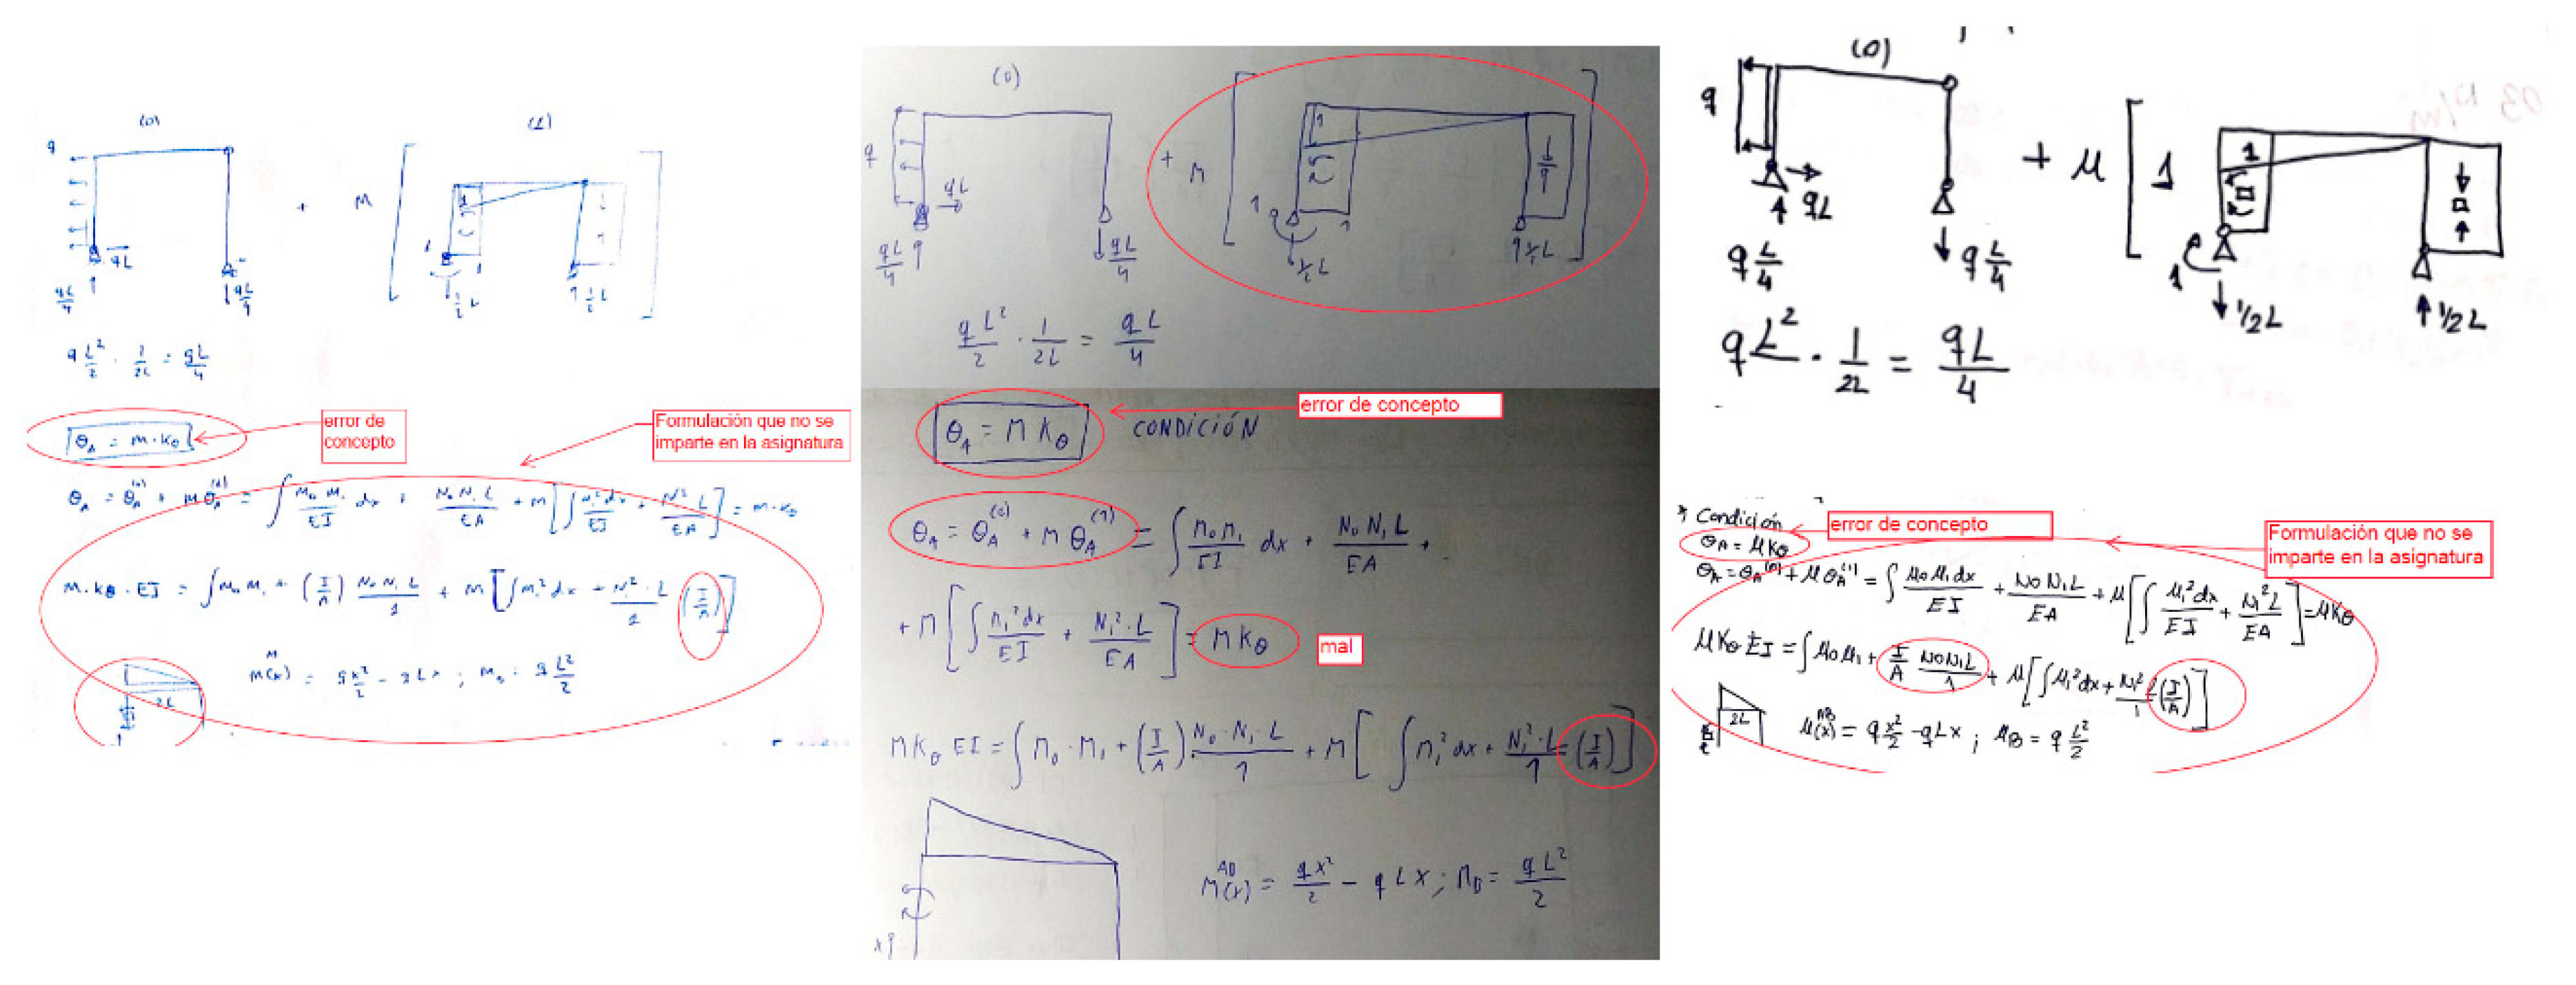 (0)
(1)
q
+
M
qL
1
1
qL/4
qL/4
1/2 L
1/2 L
q L²/2 · 1/2L = qL/4
θA = M·Kθ
error de
concepto
Formulación que no se
imparte en la asignatura
θA = θA(0) + M θA(1) = ∫ M0 M1/EI dx + N0 N1 L/EA + M [ ∫ M1² dx/EI + N1² L/EA ] = M·Kθ
M·Kθ·EI = ∫ M0 M1 + (I/A) N0 N1 L/1 + M [ ∫ M1² dx + N1²·L/1 (I/A) ]
2L
M(x) = qx²/2 - qLx ; MB = q L²/2
(0)
q
+
M
1
qL
1
1
qL/4
qL/4
1/2 L
1/2 L
qL²/2 · 1/2L = qL/4
θA = M Kθ
CONDICIÓN
error de concepto
θA = θA(0) + M θA(1) = ∫ M0 M1/EI dx + N0 N1 L/EA +
+ M [ ∫ M1² dx/EI + N1²·L/EA ] = M Kθ
mal
M Kθ EI = ∫ M0 · M1 + (I/A) · N0 · N1 · L/1 + M [ ∫ M1² dx + N1²·L/1 = (I/A) ]
M(x) = qx²/2 - qLx ; MB = qL²/2
(0)
q
+ M
1
1
qL
1
q L/4
q L/4
1/2 L
1/2 L
qL² · 1/2L = qL/4
* Condición
error de concepto
θA = MKθ
Formulación que no se
imparte en la asignatura
θA = θA(0) + M θA(1) = ∫ M0 M1 dx/EI + N0 N1 L/EA + M [ ∫ M1² dx/EI + N1² L/EA ] = MKθ
MKθ EI = ∫ M0 M1 + I/A N0 N1 L/1 + M [ ∫ M1² dx + N1² L/1 (I/A) ]
2L
AB
M(x) = q x²/2 - qLx ; MB = q L²/2